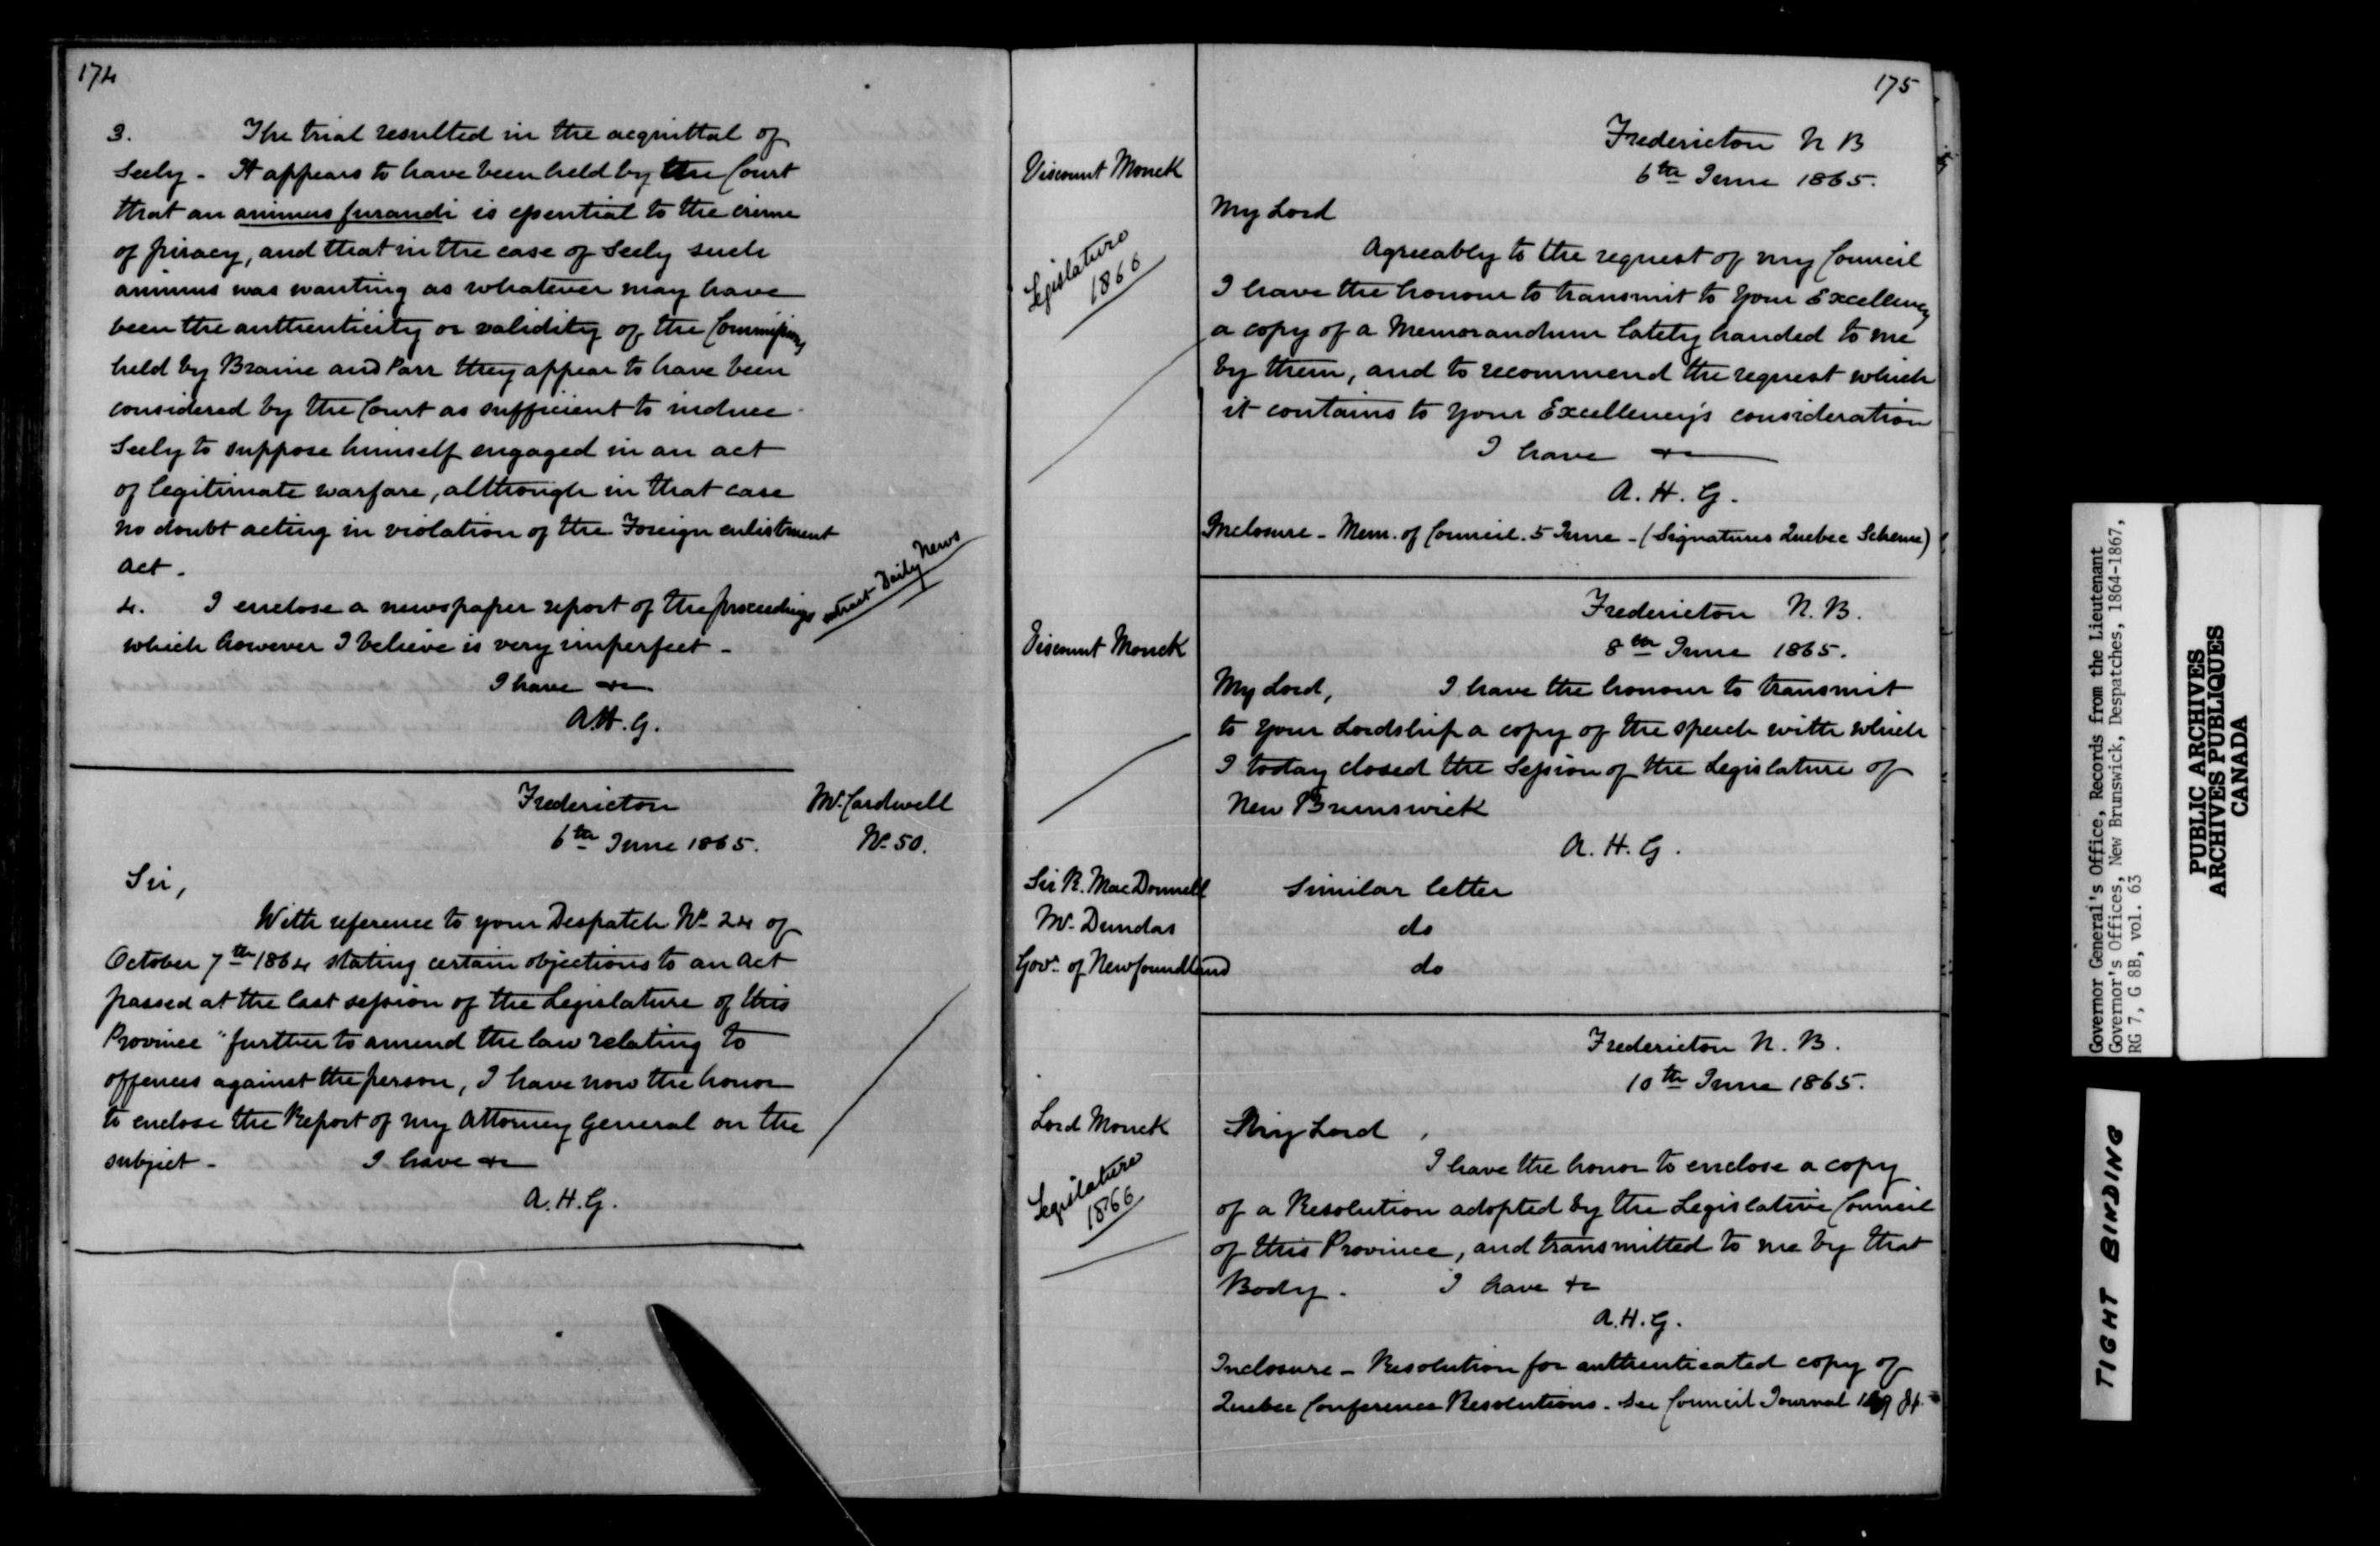 174
3. The trial resulted in the acquittal of
Seely - It appears to have been held by the Court
that an animus furandi is essential to the crime
of piracy, and that in the case of Seely such
animus was wanting as whatever may have
been the authenticity or validity of the Commissions
held by Braine and Parr they appear to have been
considered by the Court as sufficient to induce
Seely to suppose himself engaged in an act
of legitimate warfare, although in that case
no doubt acting in violation of the Foreign enlistment
act.
4. I enclose a newspaper report of the proceedings
extract Daily News
which however I believe is very imperfect -
I have &c
A.H.G.
Fredericton
6th June 1865.
Mr. Cardwell
No. 50.
Sir,
With reference to your Despatch No. 24 of
October 7th 1864 stating certain objections to an act
passed at the last session of the Legislature of this
Province "further to amend the law relating to
offences against the person, I have now the honor
to enclose the Report of my Attorney General on the
subject - I have &c
A.H.G.
175
Fredericton N B
6th June 1865.
Viscount Monck
Legislature
1866
My Lord
Agreeably to the request of my Council
I have the honour to transmit to Your Excellency
a copy of a Memorandum lately handed to me
by them, and to recommend the request which
it contains to Your Excellency's consideration
I have &c
A. H. G.
Inclosure - Mem. of Council. 5 June - (Signatures Quebec Scheme)
Fredericton N. B.
8th June 1865.
Viscount Monck
My Lord, I have the honour to transmit
to your Lordship a copy of the speech with which
I today closed the Session of the Legislature of
New Brunswick
A. H. G.
Sir R. MacDonnell Similar letter
Mr. Dundas do
Govr. of Newfoundland do
Fredericton N. B.
10th June 1865.
Lord Monck
Legislature
1866
My Lord,
I have the honor to enclose a copy
of a Resolution adopted by the Legislative Council
of this Province, and transmitted to me by that
Body. I have &c
A.H.G.
Inclosure - Resolution for authenticated copy of
Quebec Conference Resolutions. See Council Journal
Governor General's Office, Records from the Lieutenant
Governor's Offices, New Brunswick, Despatches, 1864-1867,
RG 7, G 8B, vol. 63
PUBLIC ARCHIVES
ARCHIVES PUBLIQUES
CANADA
TIGHT BINDING